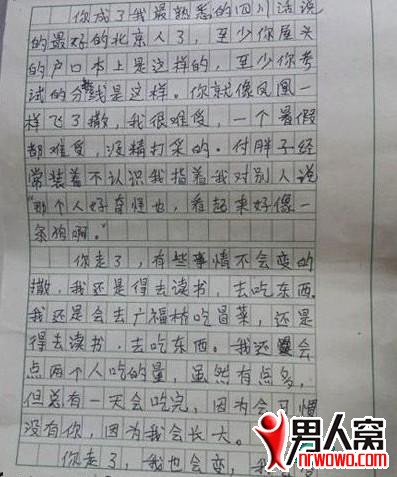 你成了我最熟悉的四川话说
的最好的北京人了，至少你屋头
的户口本上是这样的，至少你考
试的分数线是这样。你就像凤凰一
样飞了撒，我很难受，一个暑假
都难受，没精打采的。付胖子经
常装着不认识我指着我对别人说
“那个人好奇怪也，看起来好像一
条狗啊。”
你走了，有些事情不会变的
撒，我还是得去读书，去吃东西。
我还是会去广福桥吃冒菜，还是
得去读书，去吃东西。我还是会
点两个人吃的量，虽然有点多，
但总有一天会吃完，因为会习惯
没有你，因为我会长大。
你走了，我也会变，我
男人窝
nrwowo.com